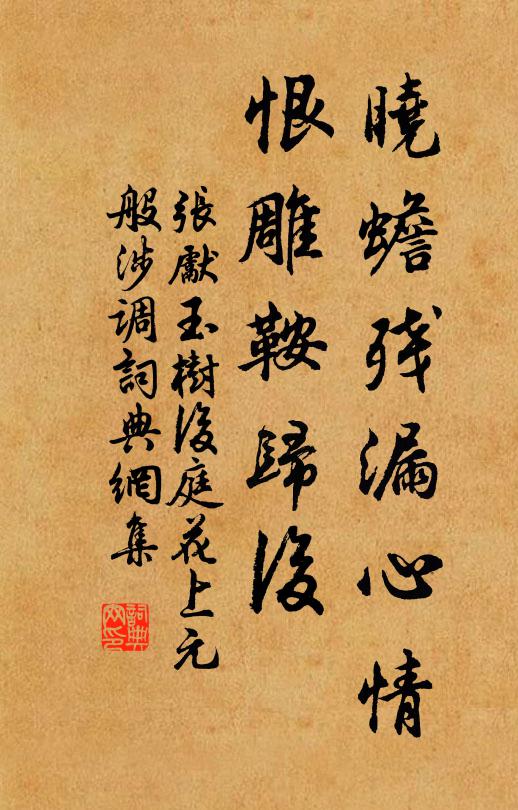 曉蟾残漏心情
恨雕鞍歸後
張獻玉樹後庭花上元
般涉调詞典網集
詞典網印